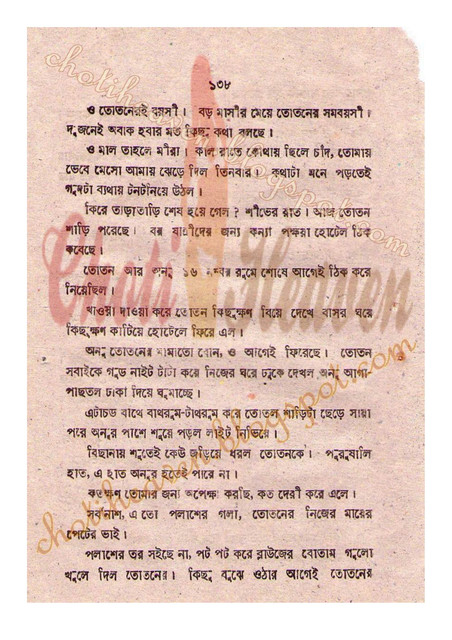 chotiheaven.blogspot.com
১৩৮
ও তোতনেরই বয়সী। বড় মাসীর মেয়ে তোতনের সমবয়সী।
দুজনেই অবাক হবার মত কিছু কথা বলছে।
ও মাল তাহলে মীরা। কাল রাতে কোথায় ছিলে চাঁদ, তোমায়
ভেবে মেসো আমায় ঝেড়ে দিল তিনবার। কথাটা মনে পড়তেই
গুদটা ব্যথায় টনটনিয়ে উঠল।
কিরে তাড়াতাড়ি শেষ হয়ে গেল? শীতের রাত। আজ তোতন
শাড়ি পরেছে। বর যাত্রীদের জন্য কন্যা পক্ষরা হোটেল ঠিক
করেছে।
তোতন আর অনু ১৬ নম্বর রুমে শোবে আগেই ঠিক করে
নিয়েছিল।
খাওয়া দাওয়া করে তোতন কিছুক্ষণ বিয়ে দেখে বাসর ঘরে
কিছুক্ষণ কাটিয়ে হোটেলে ফিরে এল।
অনু তোতনের মামাতো বোন, ও আগেই ফিরেছে। তোতন
সবাইকে গুড নাইট টাটা করে নিজের ঘরে ঢুকে দেখল অনু আগা-
পাছতল ঢাকা দিয়ে ঘুমাচ্ছে।
এটাচড বাথে বাথরুম-টাথরুম করে তোতন শাড়িটা ছেড়ে সায়া
পরে অনুর পাশে শুয়ে পড়ল লাইট নিভিয়ে।
বিছানায় শুতেই কেউ জড়িয়ে ধরল তোতনকে। পুরুষালি
হাত, এ হাত অনুর হতেই পারে না।
কতক্ষণ তোমার জন্য অপেক্ষা করছি, কত দেরী করে এলে।
সর্বনাশ, এ তো পলাশের গলা, তোতনের নিজের মায়ের
পেটের ভাই।
পলাশের তর সইছে না, পট পট করে ব্লাউজের বোতাম গুলো
খুলে দিল তোতনের। কিছু বুঝে ওঠার আগেই তোতনের
Choti Heaven
chotiheaven.blogspot.com